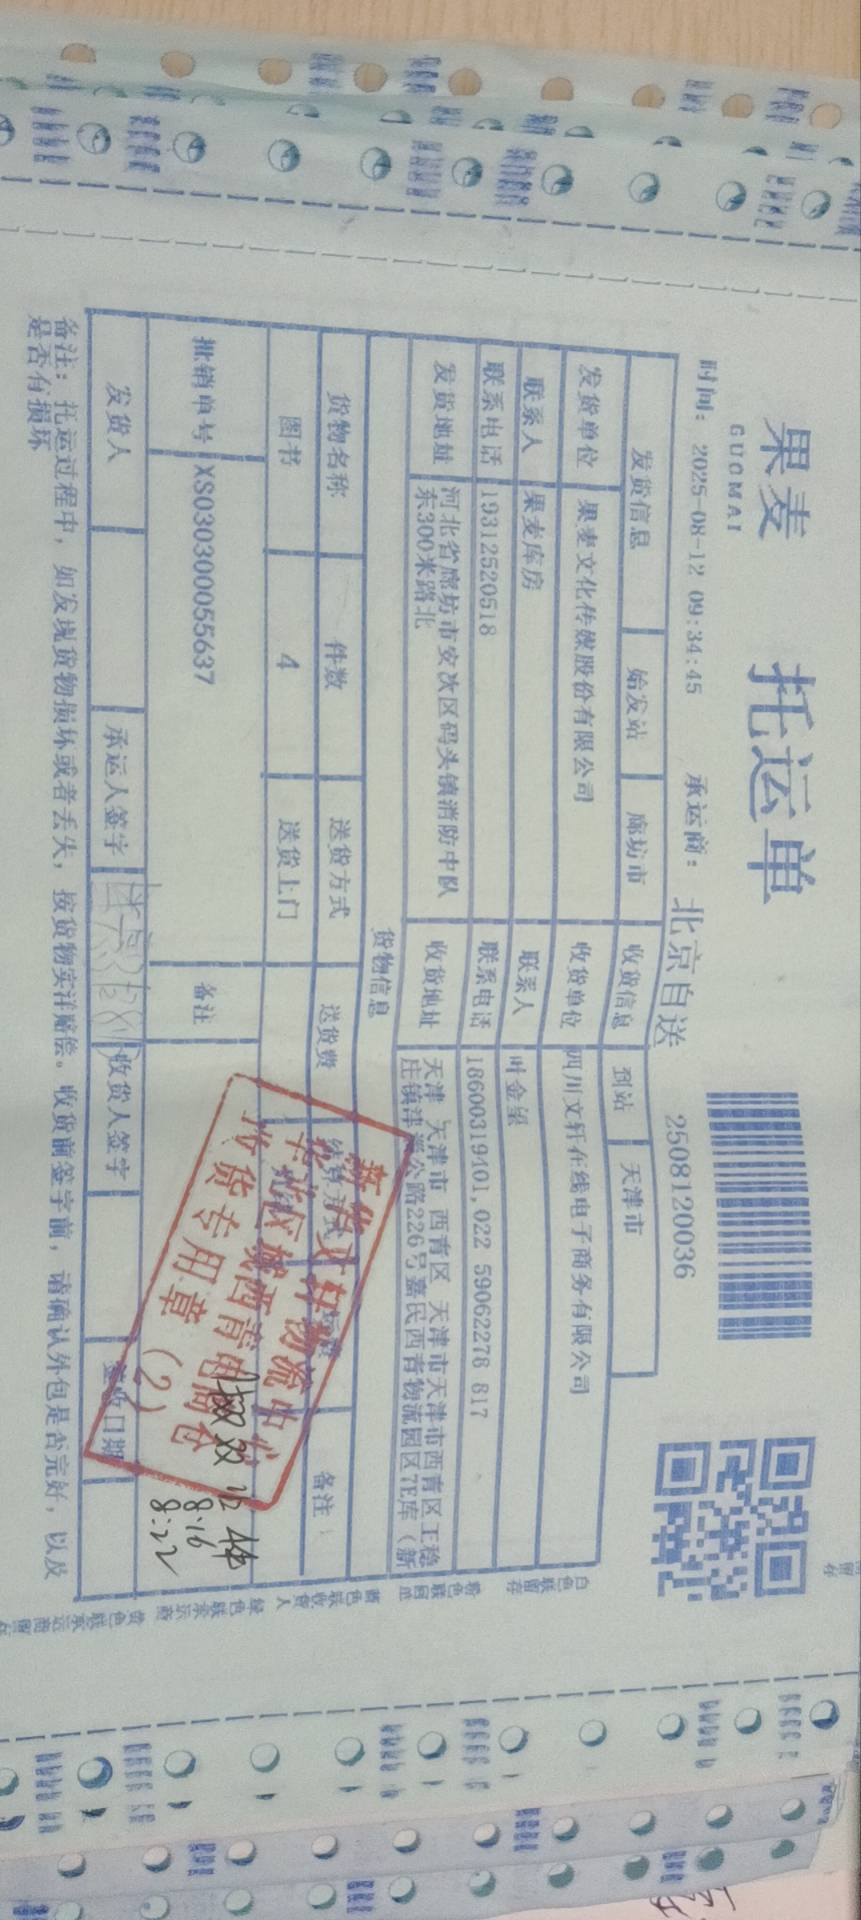 果麦
GUOMAI
托运单
2508120036
时间: 2025-08-12 09:34:45 承运商: 北京自送
发货信息 始发站 廊坊市 收货信息 到站 天津市
发货单位 果麦文化传媒股份有限公司 收货单位 四川文轩在线电子商务有限公司
联系人 果麦库房 联系人 叶金望
联系电话 19312520518 联系电话 18600319401,022 59062278 817
发货地址 河北省廊坊市安次区码头镇消防中队东300米路北 收货地址 天津 天津市 西青区 天津市天津市西青区王稳庄镇津 公路226号嘉民西青物流园区7E库（新
货物信息
货物名称 件数 送货方式 送货费 结算方式 备注
图书 4 送货上门
批销单号 XS030300055637 备注
发货人 承运人签字 收货人签字 签收日期
备注: 托运过程中, 如发现货物损坏或者丢失, 按货物实洋赔偿。收货前签字前, 请确认外包是否完好, 以及
是否有损坏
新华文轩物流中心
西青电商仓
收货专用章
(2)
8.16
8.22
白色联留存 粉色联回单 蓝色联收货人 绿色联承运商 黄色联承运商留存